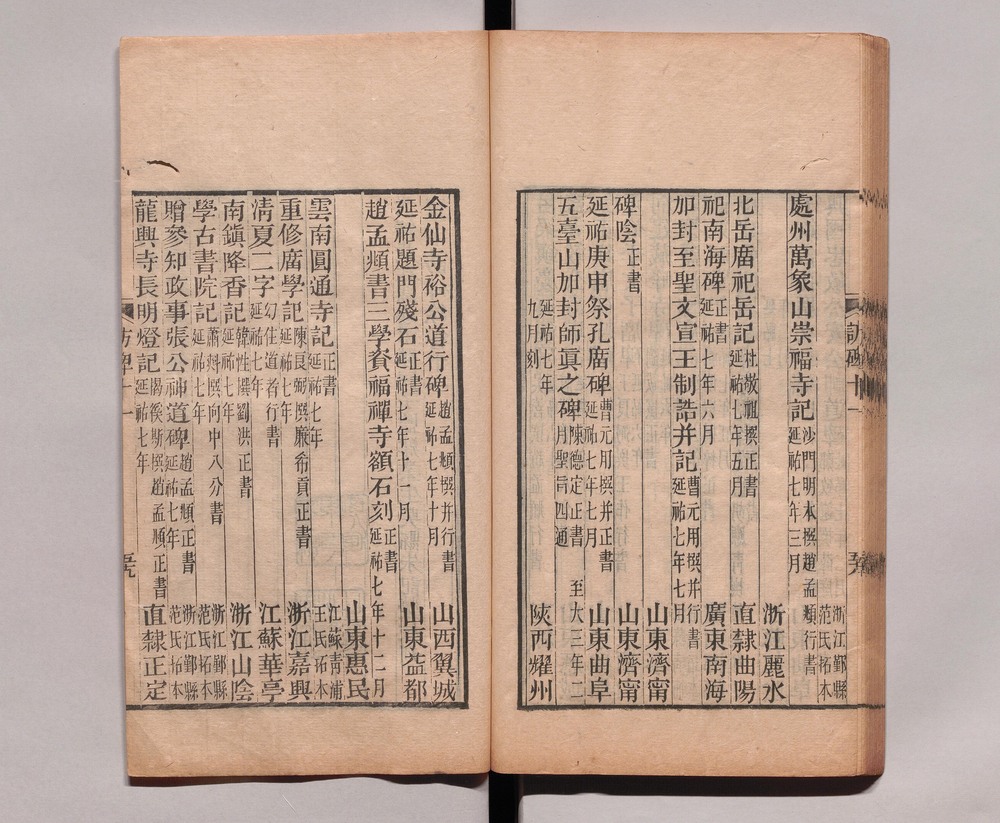 浙江鄞縣
范氏拓本
處州萬象山崇福寺記 沙門明本撰趙孟頫行書 延祐七年三月
浙江麗水
北岳廟祀岳記 杜敬祖撰正書 延祐七年五月 直隸曲陽
祀南海碑 正書 延祐七年六月 廣東南海
加封至聖文宣王制誥并記 曹元用撰并行書 延祐七年七月
山東濟甯
碑陰 正書 山東濟甯
延祐庚申祭孔廟碑 曹元用撰并正書 延祐七年七月 山東曲阜
五臺山加封師真之碑 陳德定正書 至大三年二月聖旨四通
延祐七年九月刻 陝西耀州
金仙寺裕公道行碑 趙孟頫撰并行書 延祐七年十月 山西翼城
延祐題門殘石 正書 延祐七年十一月 山東益都
趙孟頫書三學資福禪寺額石刻 正書 延祐七年十二月
山東惠民
雲南圓通寺記 正書 延祐七年 江蘇青浦王氏拓本
重修廣學記 陳良弼撰嚴希貢正書 延祐七年 浙江嘉興
淸夏二字 幻住道者行書 延祐七年 江蘇華亭
南鎮降香記 韓性撰劉洪正書 延祐七年 浙江山陰
學古書院記 蕭㪺撰向中八分書 延祐七年 浙江鄞縣范氏拓本
贈參知政事張公神道碑 趙孟頫正書 延祐七年 浙江鄞縣范氏拓本
龍興寺長明燈記 揭徯斯撰趙孟頫正書 延祐七年 直隸正定
訪碑十一
訪碑十一